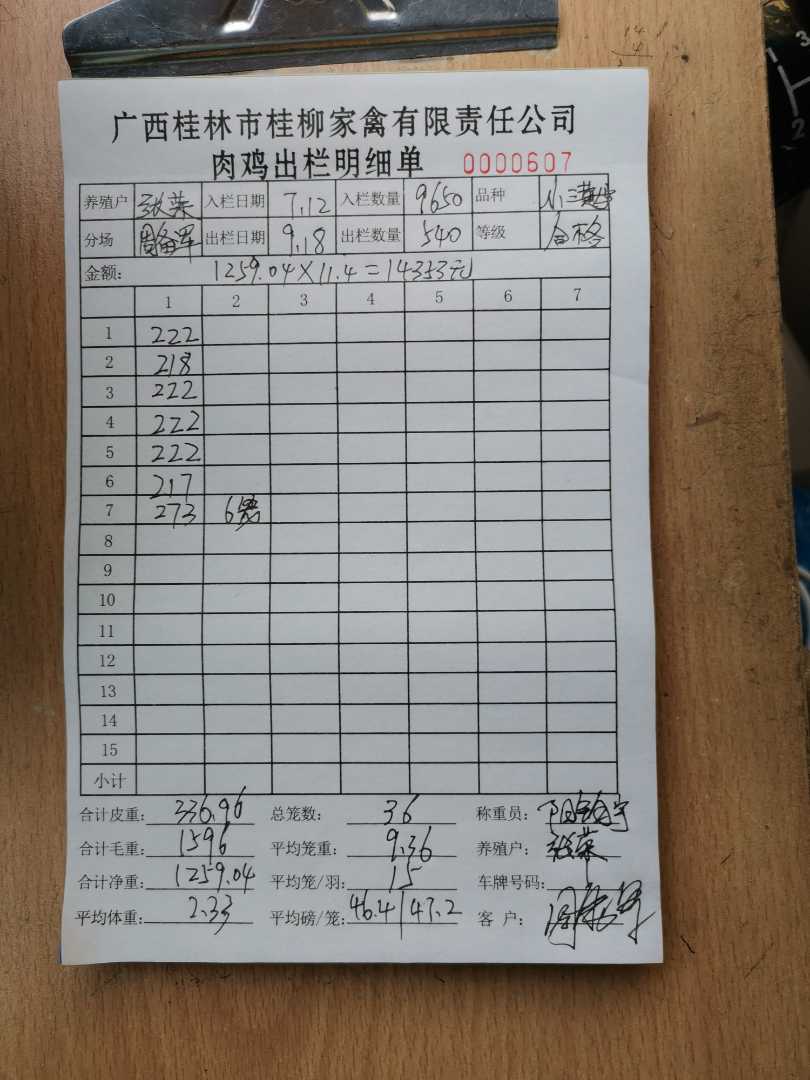 广西桂林市桂柳家禽有限责任公司
肉鸡出栏明细单 0000607
养殖户 张荣 入栏日期 7.12 入栏数量 9650 品种 小三黄
分场 出栏日期 9.18 出栏数量 540 等级 合格
金额: 1259.04×11.4=14353元
1 2 3 4 5 6 7
1 222
2 218
3 222
4 222
5 222
6 217
7 273 6
8
9
10
11
12
13
14
15
小计
合计皮重: 336.96 总笼数: 36 称重员:
合计毛重: 1596 平均笼重: 9.36 养殖户: 张荣
合计净重: 1259.04 平均笼/羽: 15 车牌号码:
平均体重: 2.33 平均磅/笼: 46.4/47.2 客 户:
1
2
3